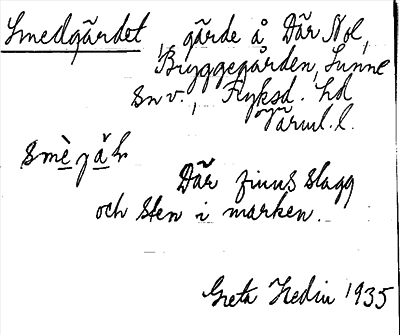 Smedgärdet, gärde å Där Nol,
Bryggegården, Sunne
sn v., Fryksd. hd
Värml. l.
smègäḷ
Där finns slagg
och sten i marken.
Greta Hedin 1935